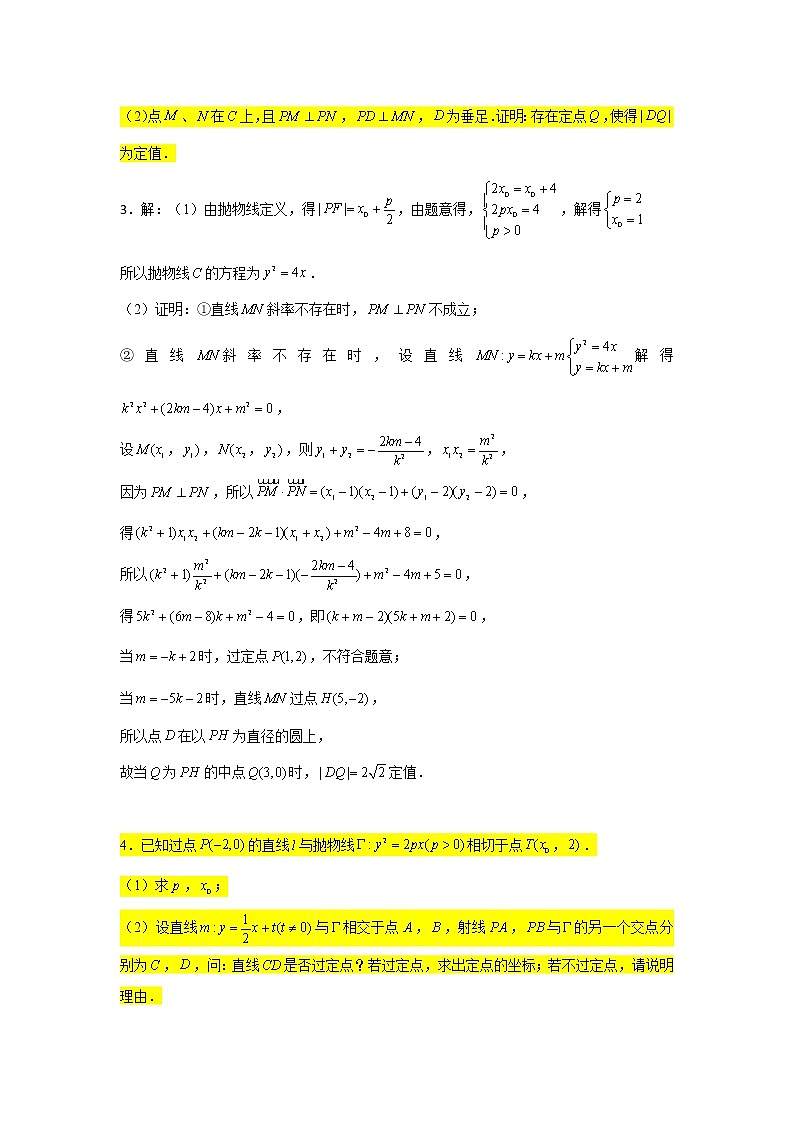 （2）点M、N在C上,且PM⊥PN，PD⊥MN，D为垂足.证明:存在定点Q,使得|DQ|
为定值．
3．解：（1）由抛物线定义，得|PF|=x₀+p/2,由题意得，{2x₀=x₀+4 2px₀=4 p>0，解得{p=2 x₀=1
所以抛物线C的方程为y²=4x．
（2）证明：①直线MN斜率不存在时，PM⊥PN不成立；
②直线MN斜率不存在时，设直线MN:y=kx+m{y²=4x y=kx+m解得
k²x²+(2km−4)x+m²=0，
设M(x₁，y₁)，N(x₂，y₂)，则y₁+y₂=−(2km−4)/k²，x₁x₂=m²/k²，
因为PM⊥PN，所以PM·PN=(x₁−1)(x₂−1)+(y₁−2)(y₂−2)=0，
得(k²+1)x₁x₂+(km−2k−1)(x₁+x₂)+m²−4m+8=0，
所以(k²+1)m²/k²+(km−2k−1)(−(2km−4)/k²)+m²−4m+5=0，
得5k²+(6m−8)k+m²−4=0,即(k+m−2)(5k+m+2)=0，
当m=−k+2时，过定点P(1,2)，不符合题意；
当m=−5k−2时，直线MN过点H(5,−2)，
所以点D在以PH为直径的圆上，
故当Q为PH的中点Q(3,0)时，|DQ|=2√2定值．
4．已知过点P(−2,0)的直线l与抛物线Γ:y²=2px(p>0)相切于点T(x₀，2)．
（1）求p，x₀；
（2）设直线m:y=1/2x+t(t≠0)与Γ相交于点A，B，射线PA，PB与Γ的另一个交点分
别为C，D，问：直线CD是否过定点？若过定点，求出定点的坐标；若不过定点，请说明
理由．